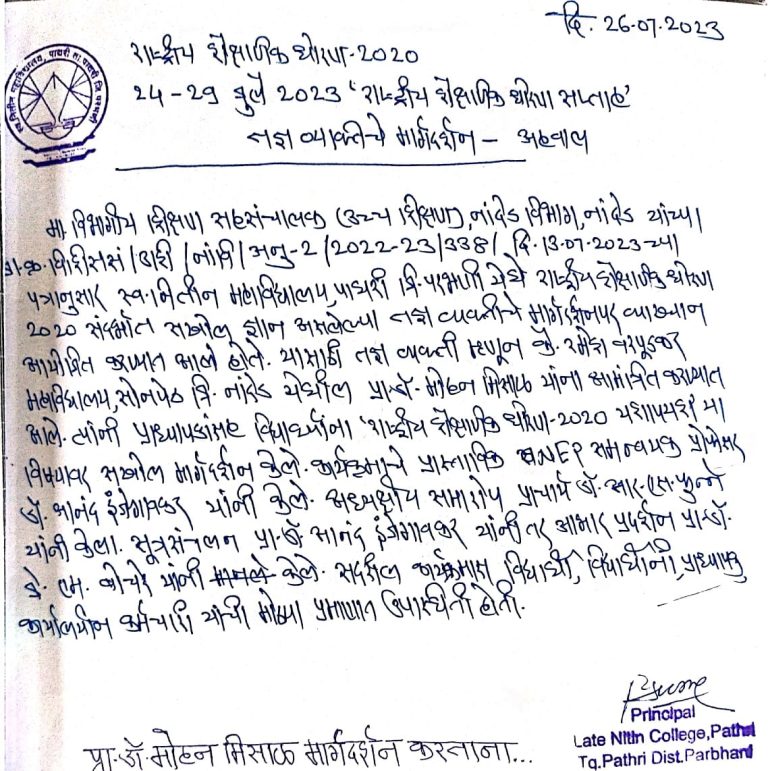 दि. 26.07.2023
राष्ट्रीय शैक्षणिक धोरण-2020
24-29 जुलै 2023 'राष्ट्रीय शैक्षणिक धोरण सप्ताह'
तज्ञ व्यक्तिचे मार्गदर्शन – अहवाल
मा. विभागीय शिक्षण सहसंचालक (उच्च शिक्षण), नांदेड विभाग, नांदेड यांच्या
जा.क्र. विशिससं/उशि/नांवि/अनु-2/2022-23/338/ दि. 13.07.2023-च्या
पत्रानुसार स्व. नितीन महाविद्यालय, पाथरी जि. परभणी येथे राष्ट्रीय शैक्षणिक धोरण
2020 संदर्भात सखोल ज्ञान असलेल्या तज्ञ व्यक्तीचे मार्गदर्शनपर व्याख्यान
आयोजित करण्यात आले होते. यासाठी तज्ञ व्यक्ती म्हणून कै. रमेश वरपूडकर
महाविद्यालय, सोनपेठ जि. नांदेड येथील प्रा.डॉ. मोहन मिसाळ यांना आमंत्रित करण्यात
आले. त्यांनी प्राध्यापकांसह विद्यार्थ्यांना 'राष्ट्रीय शैक्षणिक धोरण-2020 यशापयश' या
विषयावर सखोल मार्गदर्शन केले. कार्यक्रमाचे प्रास्ताविक NEP समन्वयक प्रोफेसर
डॉ. आनंद इंजेगावकर यांनी केले. अध्यक्षीय समारोप प्राचार्य डॉ. आर. एस. फुन्ने
यांनी केला. सूत्रसंचलन प्रा.डॉ. आनंद इंजेगावकर यांनी तर आभार प्रदर्शन प्रा.डॉ.
जे. एम. बोचरे यांनी केले. सदरील कार्यक्रमास विद्यार्थी, विद्यार्थीनी, प्राध्यापक
कार्यालयीन कर्मचारी यांची मोठ्या प्रमाणात उपस्थिती होती.
Principal
Late Nitin College, Pathri
Tq. Pathri Dist. Parbhani
प्रा.डॉ. मोहन मिसाळ मार्गदर्शन करताना...